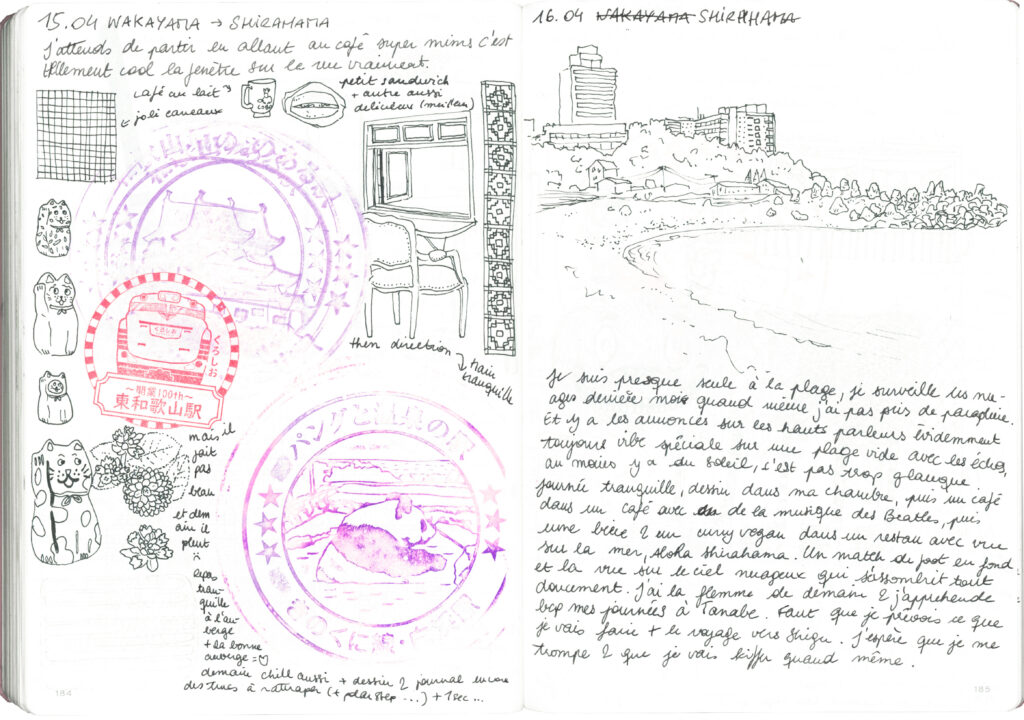 15.04 WAKAYAMA → SHIRAHAMA
J'attends de partir en allant au café super mims c'est
tellement cool la fenêtre sur la rue vraiment.
café au lait
joli carreaux
petit sandwich
+ autre aussi
délicieux (meilleur)
then direction
train
tranquille
くろしお
くろしお
~開業100th~
東和歌山駅
パンダと
mais il
fait
pas
beau
et dem
ain il
pleut
repos
tran-
quille
à l'au
berge
+ la bonne
auberge =
demain chill aussi + dessin & journal encore
des trucs à rattraper (+ polarstep ...) + 1 sec ...
184
16.04 WAKAYAMA SHIRAHAMA
Je suis presque seule à la plage, je surveille les nu-
ages derrière mais quand même j'ai pas pris de parapluie.
Et y a les annonces sur les hauts parleurs évidemment
toujours vibe spéciale sur une plage vide avec les échos,
au moins y a du soleil, c'est pas trop glauque.
Journée tranquille, dessin dans ma chambre, puis un café
dans un café avec de la musique des Beatles, puis
une bière & un curry vegan dans un restau avec vue
sur la mer, Aloha Shirahama. Un match de foot en fond
et la vue sur le ciel nuageux qui s'assombrit tout
doucement. J'ai la flemme de demain & j'appréhende
bcp mes journées à Tanabe. Faut que je prévois ce que
je vais faire + le voyage vers Shigu. J'espère que je me
trompe & que je vais kiffer quand même.
185